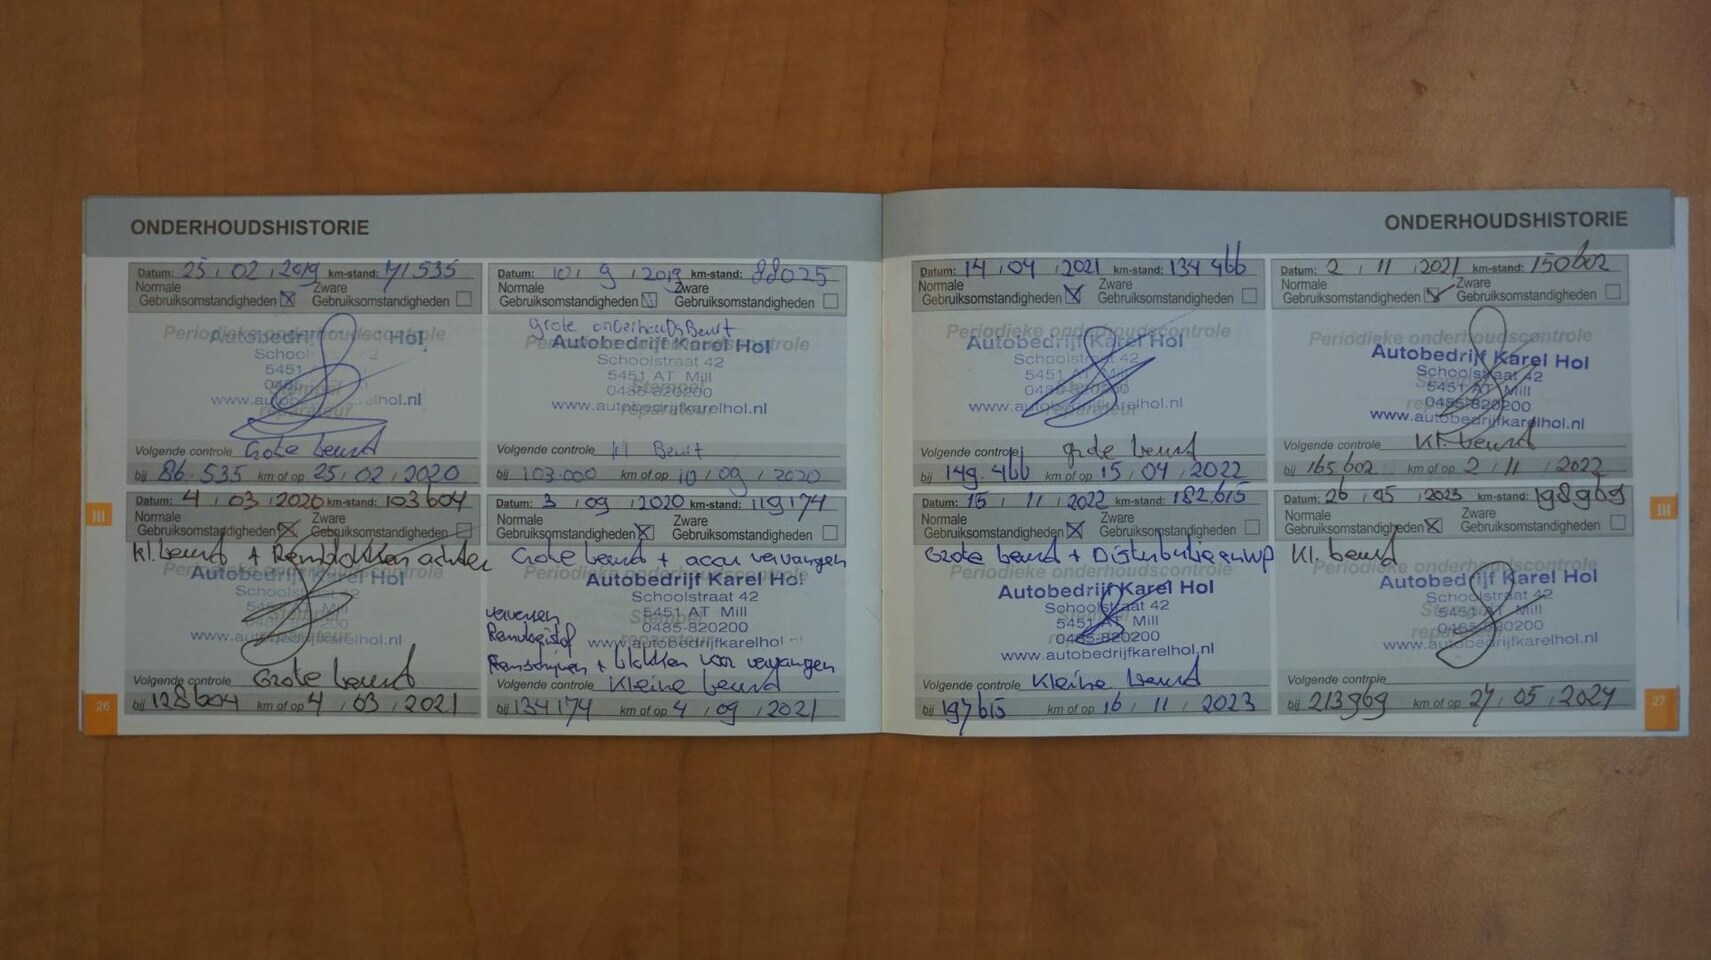 ONDERHOUDSHISTORIE
Datum: 25 / 02 / 2019 km-stand: 71535
Normale Gebruiksomstandigheden Zware Gebruiksomstandigheden
Periodieke onderhoudscontrole
Autobedrijf Hol
School 2
5451
0485
www.autob relhol.nl
Volgende controle Grote beurt
bij 86.535 km of op 25 / 02 / 2020
Datum: 10 / 9 / 2019 km-stand: 88025
Normale Gebruiksomstandigheden Zware Gebruiksomstandigheden
grote onderhoudsBeurt
Periodieke onderhoudscontrole
Autobedrijf Karel Hol
Schoolstraat 42
5451 AT Mill
Stempel
0485-820200
www.autobedrijfkarelhol.nl
reparateur
Volgende controle kl Beurt
bij 103.000 km of op 10 / 09 / 2020
Datum: 4 / 03 / 2020 km-stand: 103604
Normale Gebruiksomstandigheden Zware Gebruiksomstandigheden
Kl. beurt + Remblokken achter
Periodieke onderhoudscontrole
Autobedrijf Karel Hol
Schoolstraat 42
5451 AT Mill
0485-820200
www.autobedrijfkarelhol.nl
Volgende controle Grote beurt
bij 128604 km of op 4 / 03 / 2021
Datum: 3 / 09 / 2020 km-stand: 119174
Normale Gebruiksomstandigheden Zware Gebruiksomstandigheden
Grote beurt + accu vervangen
Periodieke onderhoudscontrole
Autobedrijf Karel Hol
Schoolstraat 42
5451 AT Mill
Stempel
0485-820200
reparateur
www.autobedrijfkarelhol.nl
verversen
Remvloeistof
Remschijven + blokken voor vervangen
Volgende controle Kleine beurt
bij 134174 km of op 4 / 09 / 2021
III
26
ONDERHOUDSHISTORIE
Datum: 14 / 04 / 2021 km-stand: 134466
Normale Gebruiksomstandigheden Zware Gebruiksomstandigheden
Periodieke onderhoudscontrole
Autobedrijf Karel Hol
Schoolstraat 42
5451 AT Mill
0485-820200
www.autobedrijfkarelhol.nl
Volgende controle grote beurt
bij 149.466 km of op 15 / 04 / 2022
Datum: 2 / 11 / 2021 km-stand: 150602
Normale Gebruiksomstandigheden Zware Gebruiksomstandigheden
Periodieke onderhoudscontrole
Autobedrijf Karel Hol
Schoolstraat 42
5451 AT Mill
0485-820200
www.autobedrijfkarelhol.nl
Volgende controle Kl. beurt
bij 165602 km of op 2 / 11 / 2022
Datum: 15 / 11 / 2022 km-stand: 182.615
Normale Gebruiksomstandigheden Zware Gebruiksomstandigheden
Grote beurt + Distributie en WP
Periodieke onderhoudscontrole
Autobedrijf Karel Hol
Schoolstraat 42
5451 AT Mill
0485-820200
www.autobedrijfkarelhol.nl
Volgende controle Kleine beurt
bij 197615 km of op 16 / 11 / 2023
Datum: 26 / 05 / 2023 km-stand: 198969
Normale Gebruiksomstandigheden Zware Gebruiksomstandigheden
Kl. beurt
Periodieke onderhoudscontrole
Autobedrijf Karel Hol
Schoolstraat 42
5451 AT Mill
0485-820200
www.autobedrijfkarelhol.nl
Volgende controle
bij 213969 km of op 27 / 05 / 2024
III
27